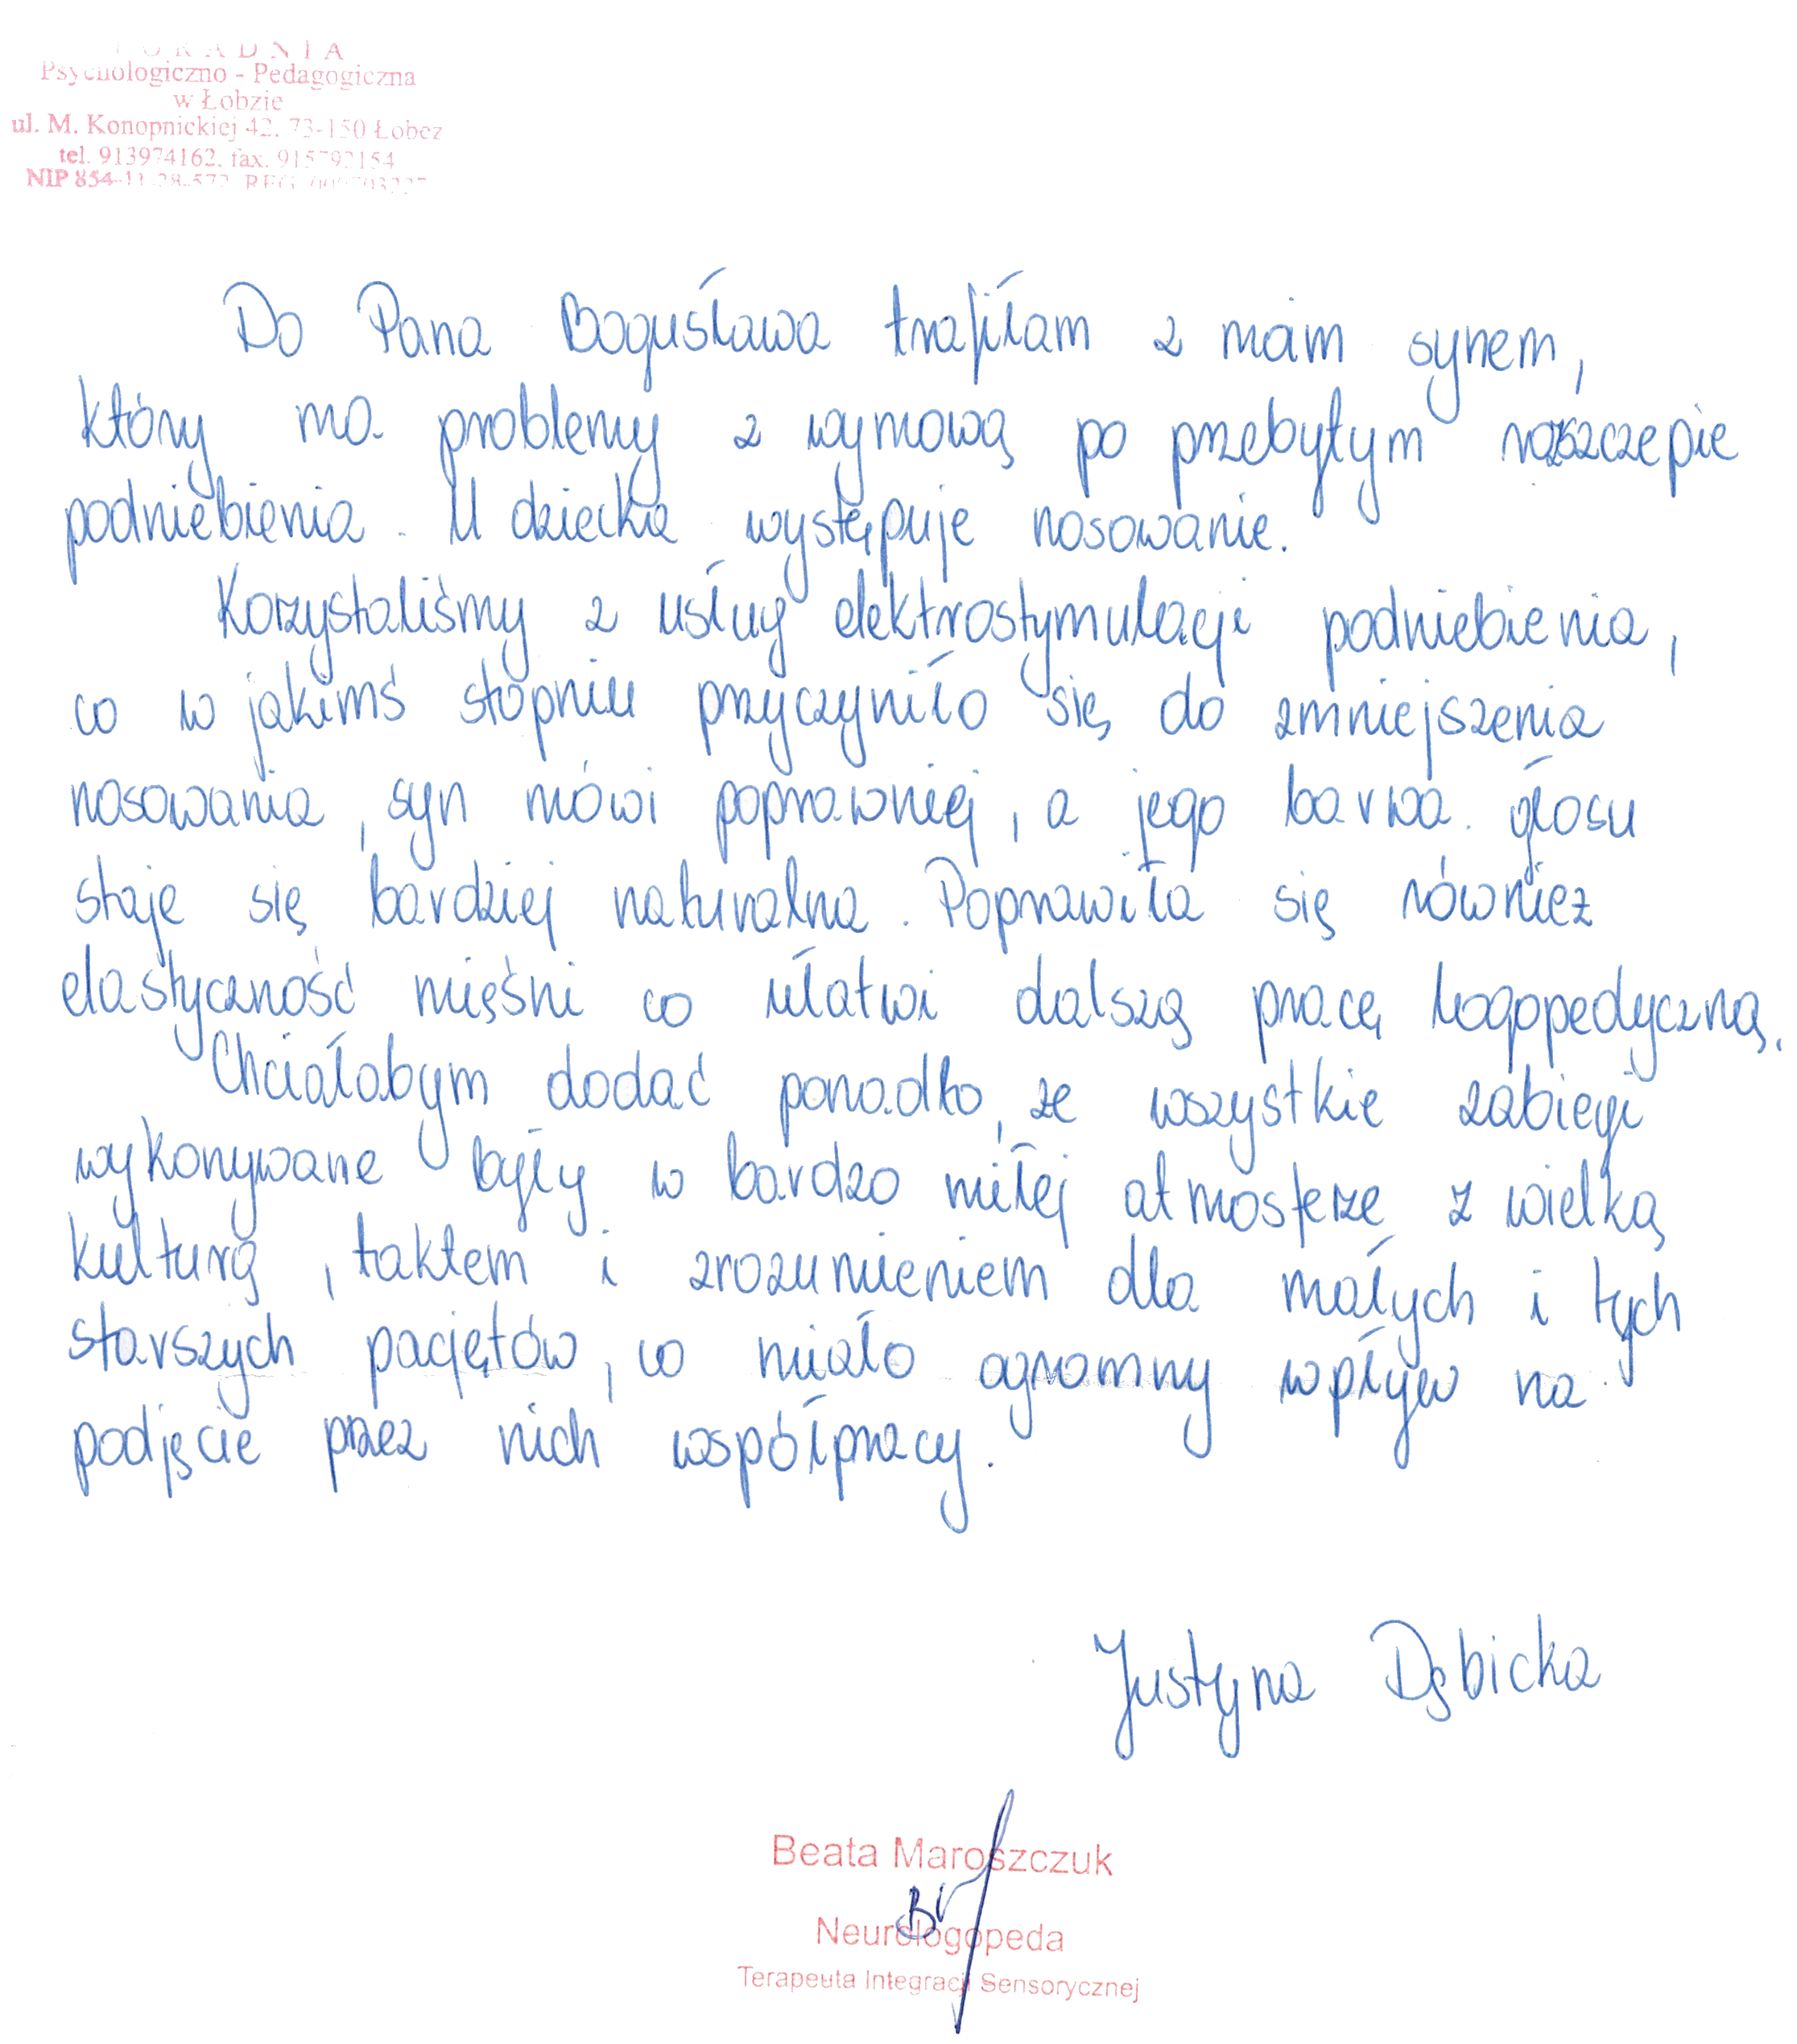 PORADNIA
Psychologiczno - Pedagogiczna
w Łobzie
ul. M. Konopnickiej 42, 73-150 Łobez
tel. 913974162, fax. 915792154
NIP 854-11-28-572
Do Pana Bogusława trafiłam z moim synem,
który ma problemy z wymową po przebytym rozszczepie
podniebienia. U dziecka występuje nosowanie.
Korzystaliśmy z usług elektrostymulacji podniebienia,
co w jakimś stopniu przyczyniło się do zmniejszenia
nosowania, syn mówi poprawniej, a jego barwa głosu
staje się bardziej naturalna. Poprawiła się również
elastyczność mięśni co ułatwi dalszą pracę logopedyczną.
Chciałabym dodać ponadto, że wszystkie zabiegi
wykonywane były w bardzo miłej atmosferze z wielką
kulturą, taktem i zrozumieniem dla małych i tych
starszych pacjętów, co miało ogromny wpływ na
podjęcie przez nich współpracy.
Justyna Dębicka
Beata Maroszczuk
Neurologopeda
Terapeuta Integracji Sensorycznej